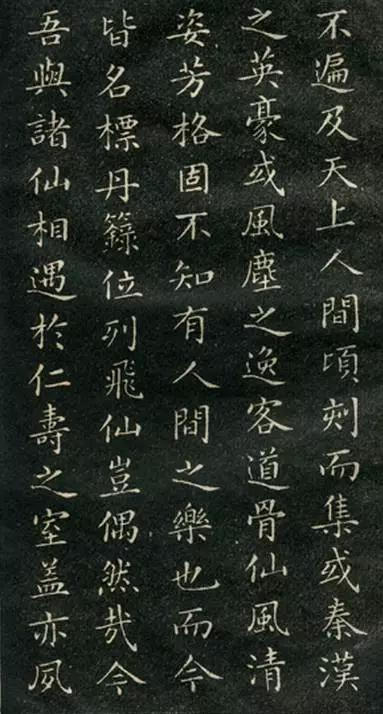 不遍及天上人間頃刻而集或秦漢
之英豪或風塵之逸客道骨仙風清
姿芳格固不知有人間之樂也而今
皆名標丹籙位列飛仙豈偶然哉今
吾與諸仙相遇於仁壽之室蓋亦夙